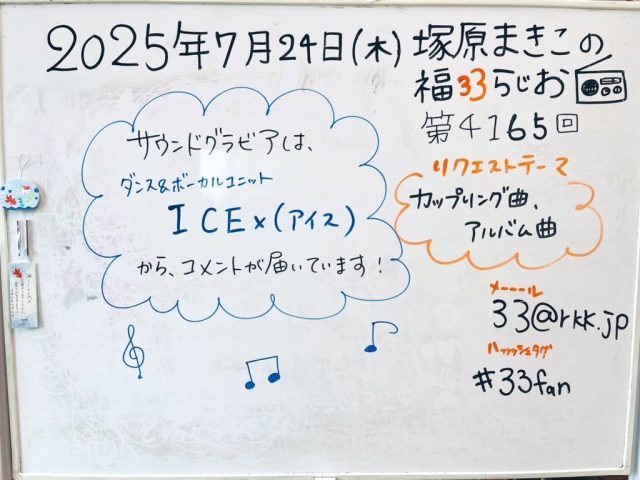 2025年7月24日(木) 塚原まきこの
福33らじお
第4165回
サウンドグラビアは、
ダンス&ボーカルユニット
ICEx(アイス)
から、コメントが届いています!
リクエストテーマ
カップリング曲、
アルバム曲
メーーール
33@rkk.jp
ハッッシュタグ
#33fan